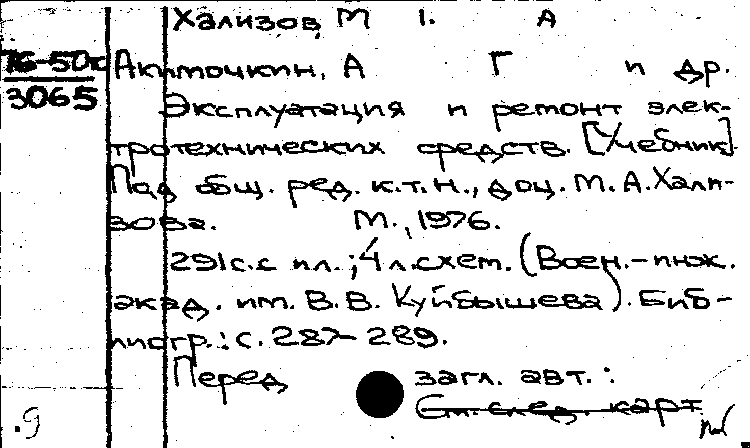 Хализов, М 1. А
76-50к Акимочкин, А Г и др.
3065
Эксплуатация и ремонт элек-
тротехнических средств. [Учебник].
Под общ. ред. к.т.н., доц. М.А.Хали-
зова. М., 1976.
291с.с ил.; 4 л.схем. (Воен.-инж.
акад. им. В.В. Куйбышева). Биб-
лиогр.: с. 287-289.
Перед загл. авт.:
См. след. карт
.9